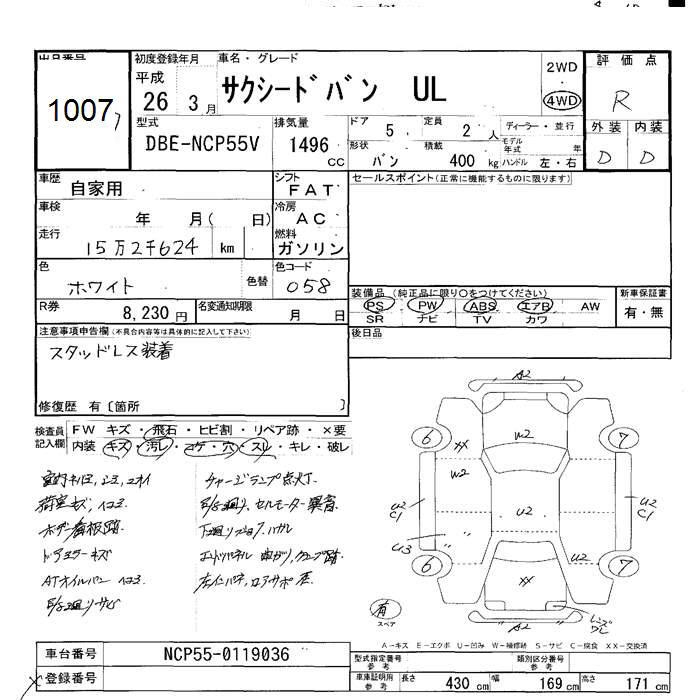 出品番号
1007
初度登録年月
平成
26 3月
車名・グレード
サクシードバン UL
2WD
・
4WD
評価点
R
型式
DBE-NCP55V
排気量
1496
CC
ドア
5
定員
2 人
ディーラー・並行
モデル年式 年
形状
バン
積載
400 kg
ハンドル 左・右
外装 内装
D D
車歴
自家用
シフト
FAT
セールスポイント(正常に機能するものに限ります)
車検
年 月( 日)
冷房
AC
走行
15万2千624 km
燃料
ガソリン
色
ホワイト
色替
色コード
058
装備品 (純正品に限り〇をつけてください)
PS PW ABS エアB AW
SR ナビ TV カワ
新車保証書
有・無
R券
8,230円
名変通知期限
月 日
後日品
注意事項申告欄(不具合内容等は具体的に記入して下さい)
スタッドレス装着
修復歴 有〔箇所 〕
検査員記入欄
FW キズ・飛石・ヒビ割・リペア跡・×要
内装 キズ・汚レ・コゲ・穴・スレ・キレ・破レ
室内キバミ、シミ、ニオイ
チャージランプ点灯.
荷室キズ、凹コミ
E/G廻り、セルモーター異音.
ボデー看板跡
下廻り
ドアミラーキズ
エンドパネル 曲がり、
ATオイルパン 凹コミ
E/G廻りサビ
A2
W2
XX
W2
U2
U2
C1
U3
U2
C1
U2
XX
A2
レンズワレ
6
7
6
7
有
スペア
A-キズ E-エクボ U-凹み W-補修跡 S-サビ C-腐食 XX-交換済
車台番号
NCP55-0119036
登録番号
型式指定番号
参考
類別区分番号
参考
車庫証明用
参考
長さ 430 cm
幅 169 cm
高さ 171 cm